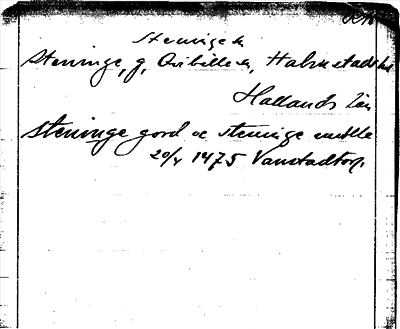 Steninge k
Steninge, g, Kvibille sn, Halmstads hd
Hallands län
steninge gord oc steninge mølle
20/x 1475 Vanstadtorp.